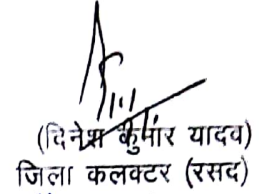 (दिनेश कुमार यादव)
जिला कलक्टर (रसद)